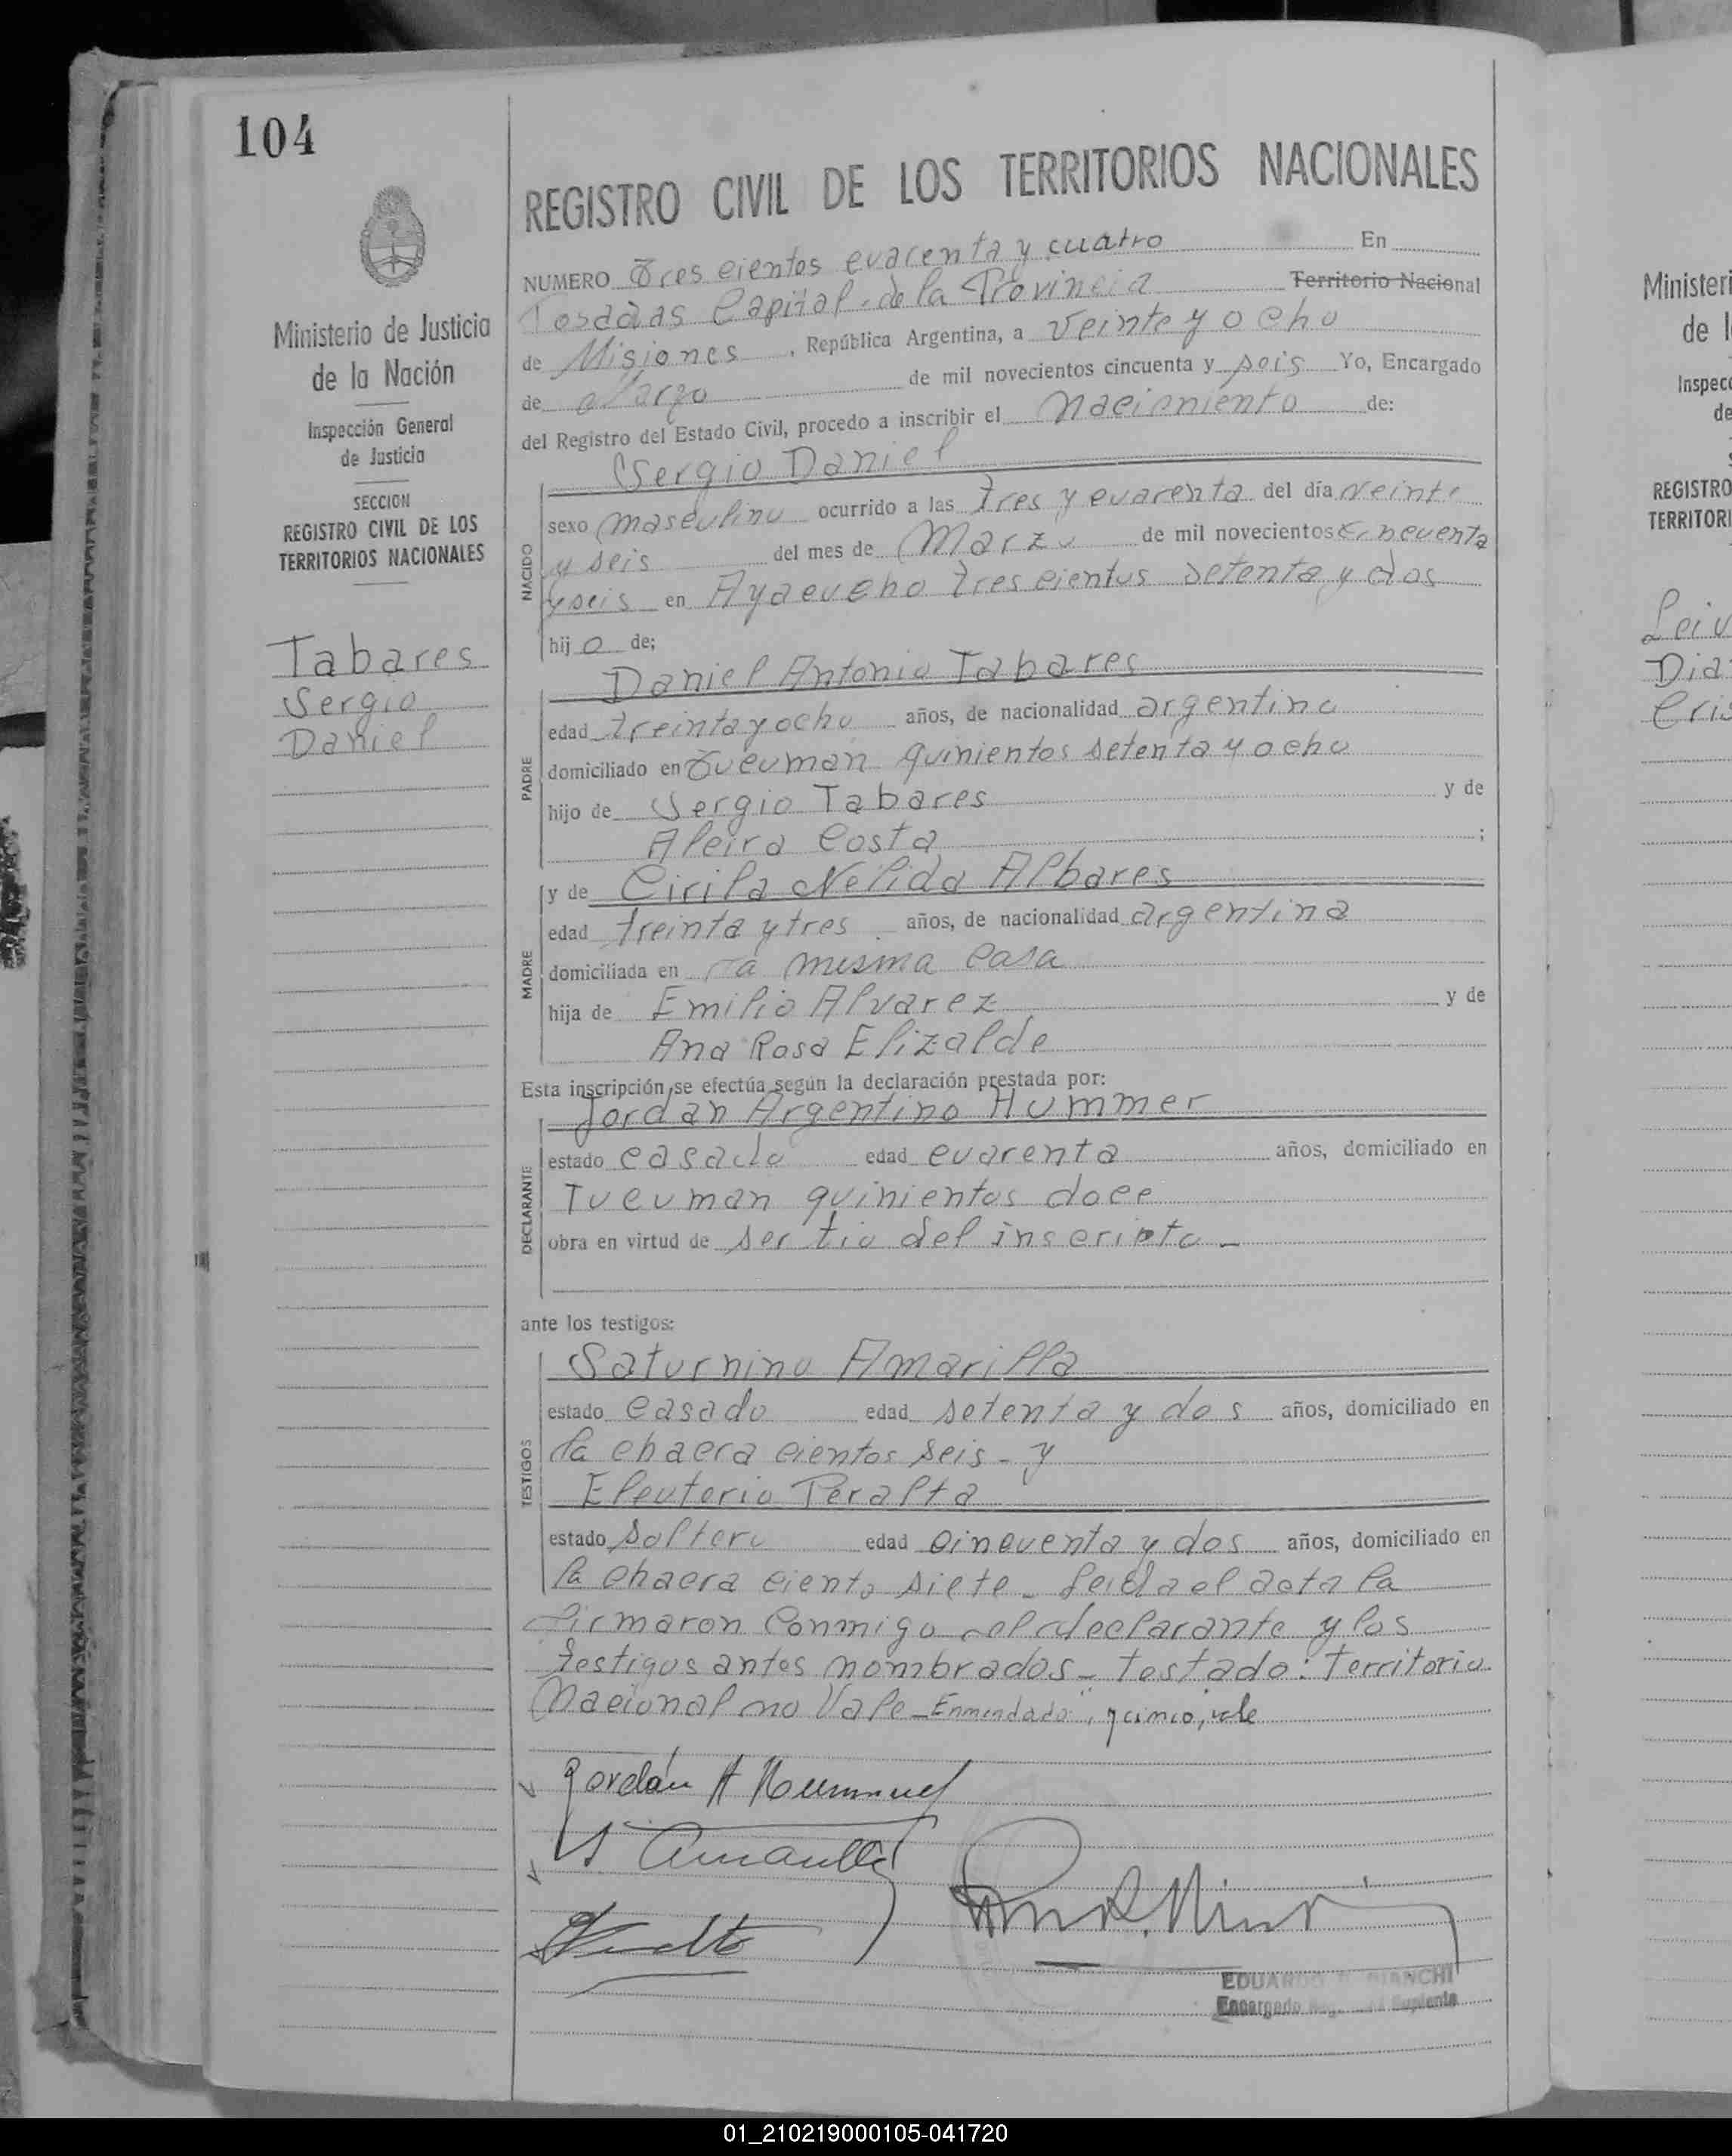 104
Ministerio de Justicia
de la Nación
Inspección General
de Justicia
SECCION
REGISTRO CIVIL DE LOS
TERRITORIOS NACIONALES
Tabares
Sergio
Daniel
REGISTRO CIVIL DE LOS TERRITORIOS NACIONALES
NUMERO Tres cientos cuarenta y cuatro En
Posadas Capital de la Provincia Territorio Nacional
de Misiones, República Argentina, a veinte y ocho
de Marzo de mil novecientos cincuenta y seis Yo, Encargado
del Registro del Estado Civil, procedo a inscribir el nacimiento de:
Sergio Daniel
NACIDO
sexo masculino ocurrido a las tres y cuarenta del día veinte
y seis del mes de Marzo de mil novecientos cincuenta
y seis en Ayacucho tres cientos setenta y dos
hijo de;
Daniel Antonio Tabares
PADRE
edad treinta y ocho años, de nacionalidad argentino
domiciliado en Tucuman quinientos setenta y ocho
hijo de Sergio Tabares y de
Alcira Costa ;
y de Cirila Nelida Albares
MADRE
edad treinta y tres años, de nacionalidad argentina
domiciliada en la misma casa
hija de Emilio Alvarez y de
Ana Rosa Elizalde
Esta inscripción se efectúa según la declaración prestada por:
Jordan Argentino Hummer
DECLARANTE
estado casado edad cuarenta años, domiciliado en
Tucuman quinientos doce
obra en virtud de ser tio del inscripto -
ante los testigos:
Saturnino Amarilla
TESTIGOS
estado casado edad setenta y dos años, domiciliado en
la chacra cientos seis - y
Eleuterio Peralta
estado soltero edad cincuenta y dos años, domiciliado en
la chacra ciento siete - Leida el acta la
firmaron conmigo el declarante y los
testigos antes nombrados - testado: Territorio
Nacional no Vale - Enmendado ", y cinco, vale
Jordán A Hummer
S. Amarilla
EDUARDO BIANCHI
Encargado Suplente
Ministeri
de l
Inspecc
de
REGISTRO
TERRITORI
Leiv
Dia
Cris
01_210219000105-041720